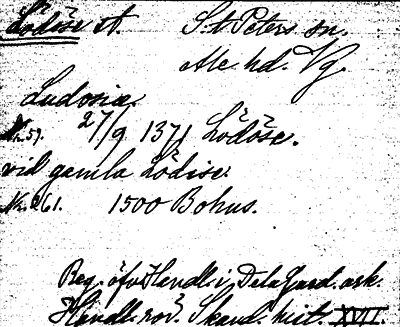 Lödöse st. S:t Peters sn.
Ale hd. Vg.
Ludosia.
Nr. 59. 27/9 1371 Lödöse.
vid gamla Lödise.
Nr. 261. 1500 Bohus.
Reg. öfv. Handl. i Dela Gard. ark.
Handl. rör. Skand. hist. XVII.